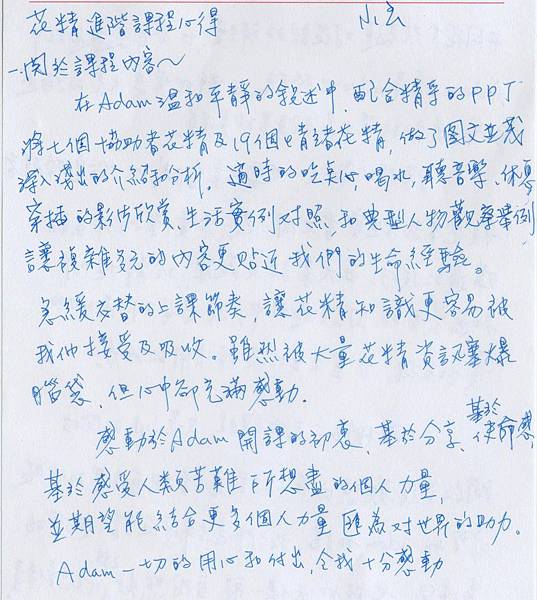 花精進階課程心得
一.關於課程內容～
在Adam溫和平靜的敘述中,配合精準的PPT
將七個協助者花精及19個情緒花精,做了图文並茂
深入淺出的介紹和分析。適時的吃点心,喝水,聽音樂、休憩
穿插的影片欣赏、生活實例对照,和典型人物觀察舉例
讓複雜多元的內容更貼近我們的生命經驗。
急緩交替的上課節奏,讓花精知識更容易被
我们接受及吸收。雖然被大量花精資訊塞爆
腦袋,但心中卻充滿感動.
感動於Adam開課的初衷,基於分享、基於使命感
基於感受人類苦難所想盡的個人力量,
並期望能結合更多個人力量匯為对世界的助力。
Adam一切的用心和付出,令我十分感動